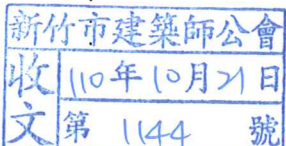 新竹市建築師公會
收文
110年10月21日
第 1144 號